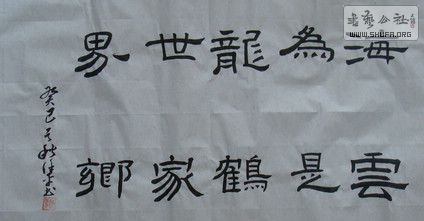 海為龍世界
雲是鶴家鄉
癸巳
書藝公社
WWW.SHUFA.ORG